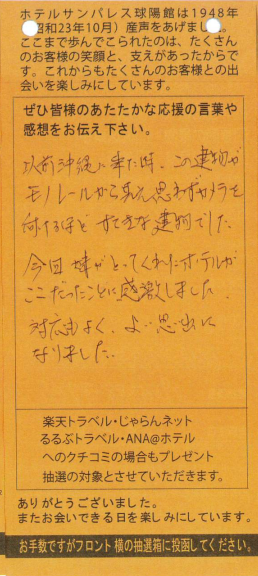 ホテルサンパレス球陽館は1948年
昭和23年10月）産声をあげました。
ここまで歩んでこられたのは、たくさん
のお客様の笑顔と、支えがあったからで
す。これからもたくさんのお客様との出
会いを楽しみにしています。
ぜひ皆様のあたたかな応援の言葉や
感想をお伝え下さい。
以前沖縄に来た時、この建物が
モノレールから見え思わずカメラを
向けるほど すてきな建物でした。
今回 がとってくれたホテルが
ここだったことに感激しました。
対応もよく、よい思い出に
なりました。
楽天トラベル・じゃらんネット
るるぶトラベル・ANA@ホテル
へのクチコミの場合もプレゼント
抽選の対象とさせていただきます。
ありがとうございました。
またお会いできる日を楽しみにしています。
お手数ですがフロント横の抽選箱に投函してください。